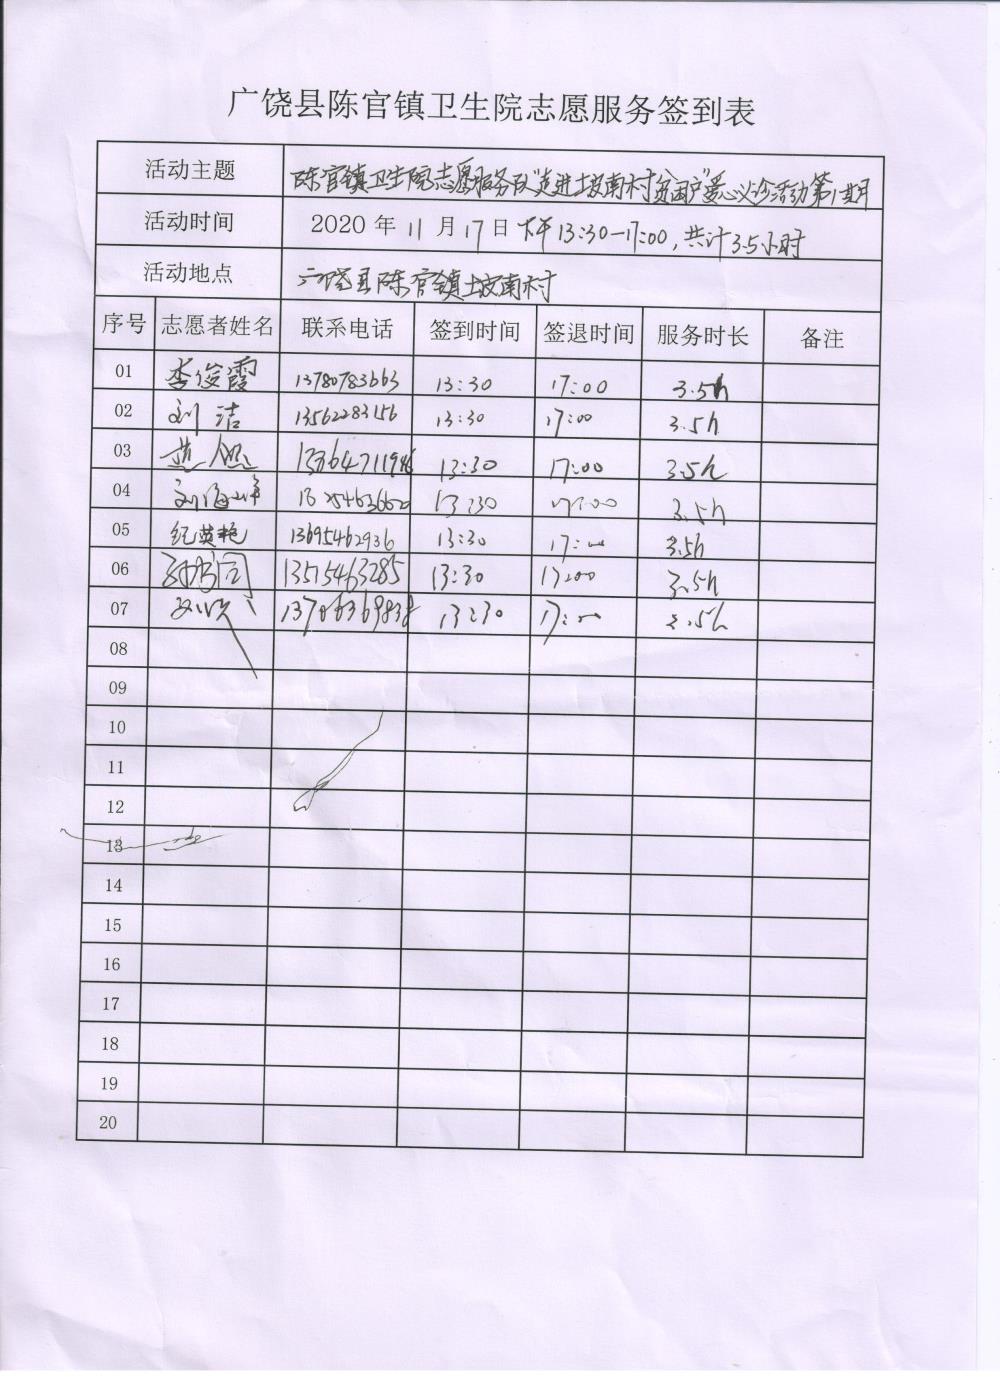 广饶县陈官镇卫生院志愿服务签到表
活动主题 陈官镇卫生院志愿服务队"走进坡南村贫困户"爱心义诊活动第1期
活动时间 2020年11月17日下午13:30-17:00,共计3.5小时
活动地点 广饶县陈官镇坡南村
序号 志愿者姓名 联系电话 签到时间 签退时间 服务时长 备注
01 李俊霞 13780783663 13:30 17:00 3.5h
02 刘洁 13562283156 13:30 17:00 3.5h
03 13:30 17:00 3.5h
04 刘海峰 13:30 17:00 3.5h
05 纪英艳 13695462936 13:30 17:00 3.5h
06 13515463285 13:30 17:00 3.5h
07 13706369838 13:30 17:00 3.5h
08
09
10
11
12
13
14
15
16
17
18
19
20